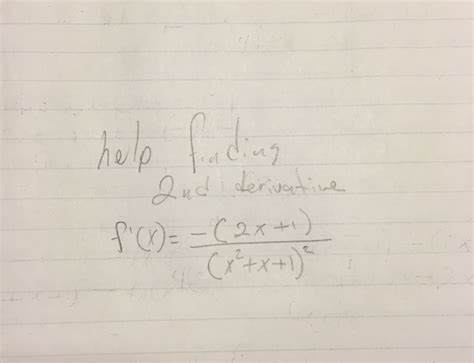 help finding
2nd derivative
f'(x) = -(2x+1) / (x²+x+1)²